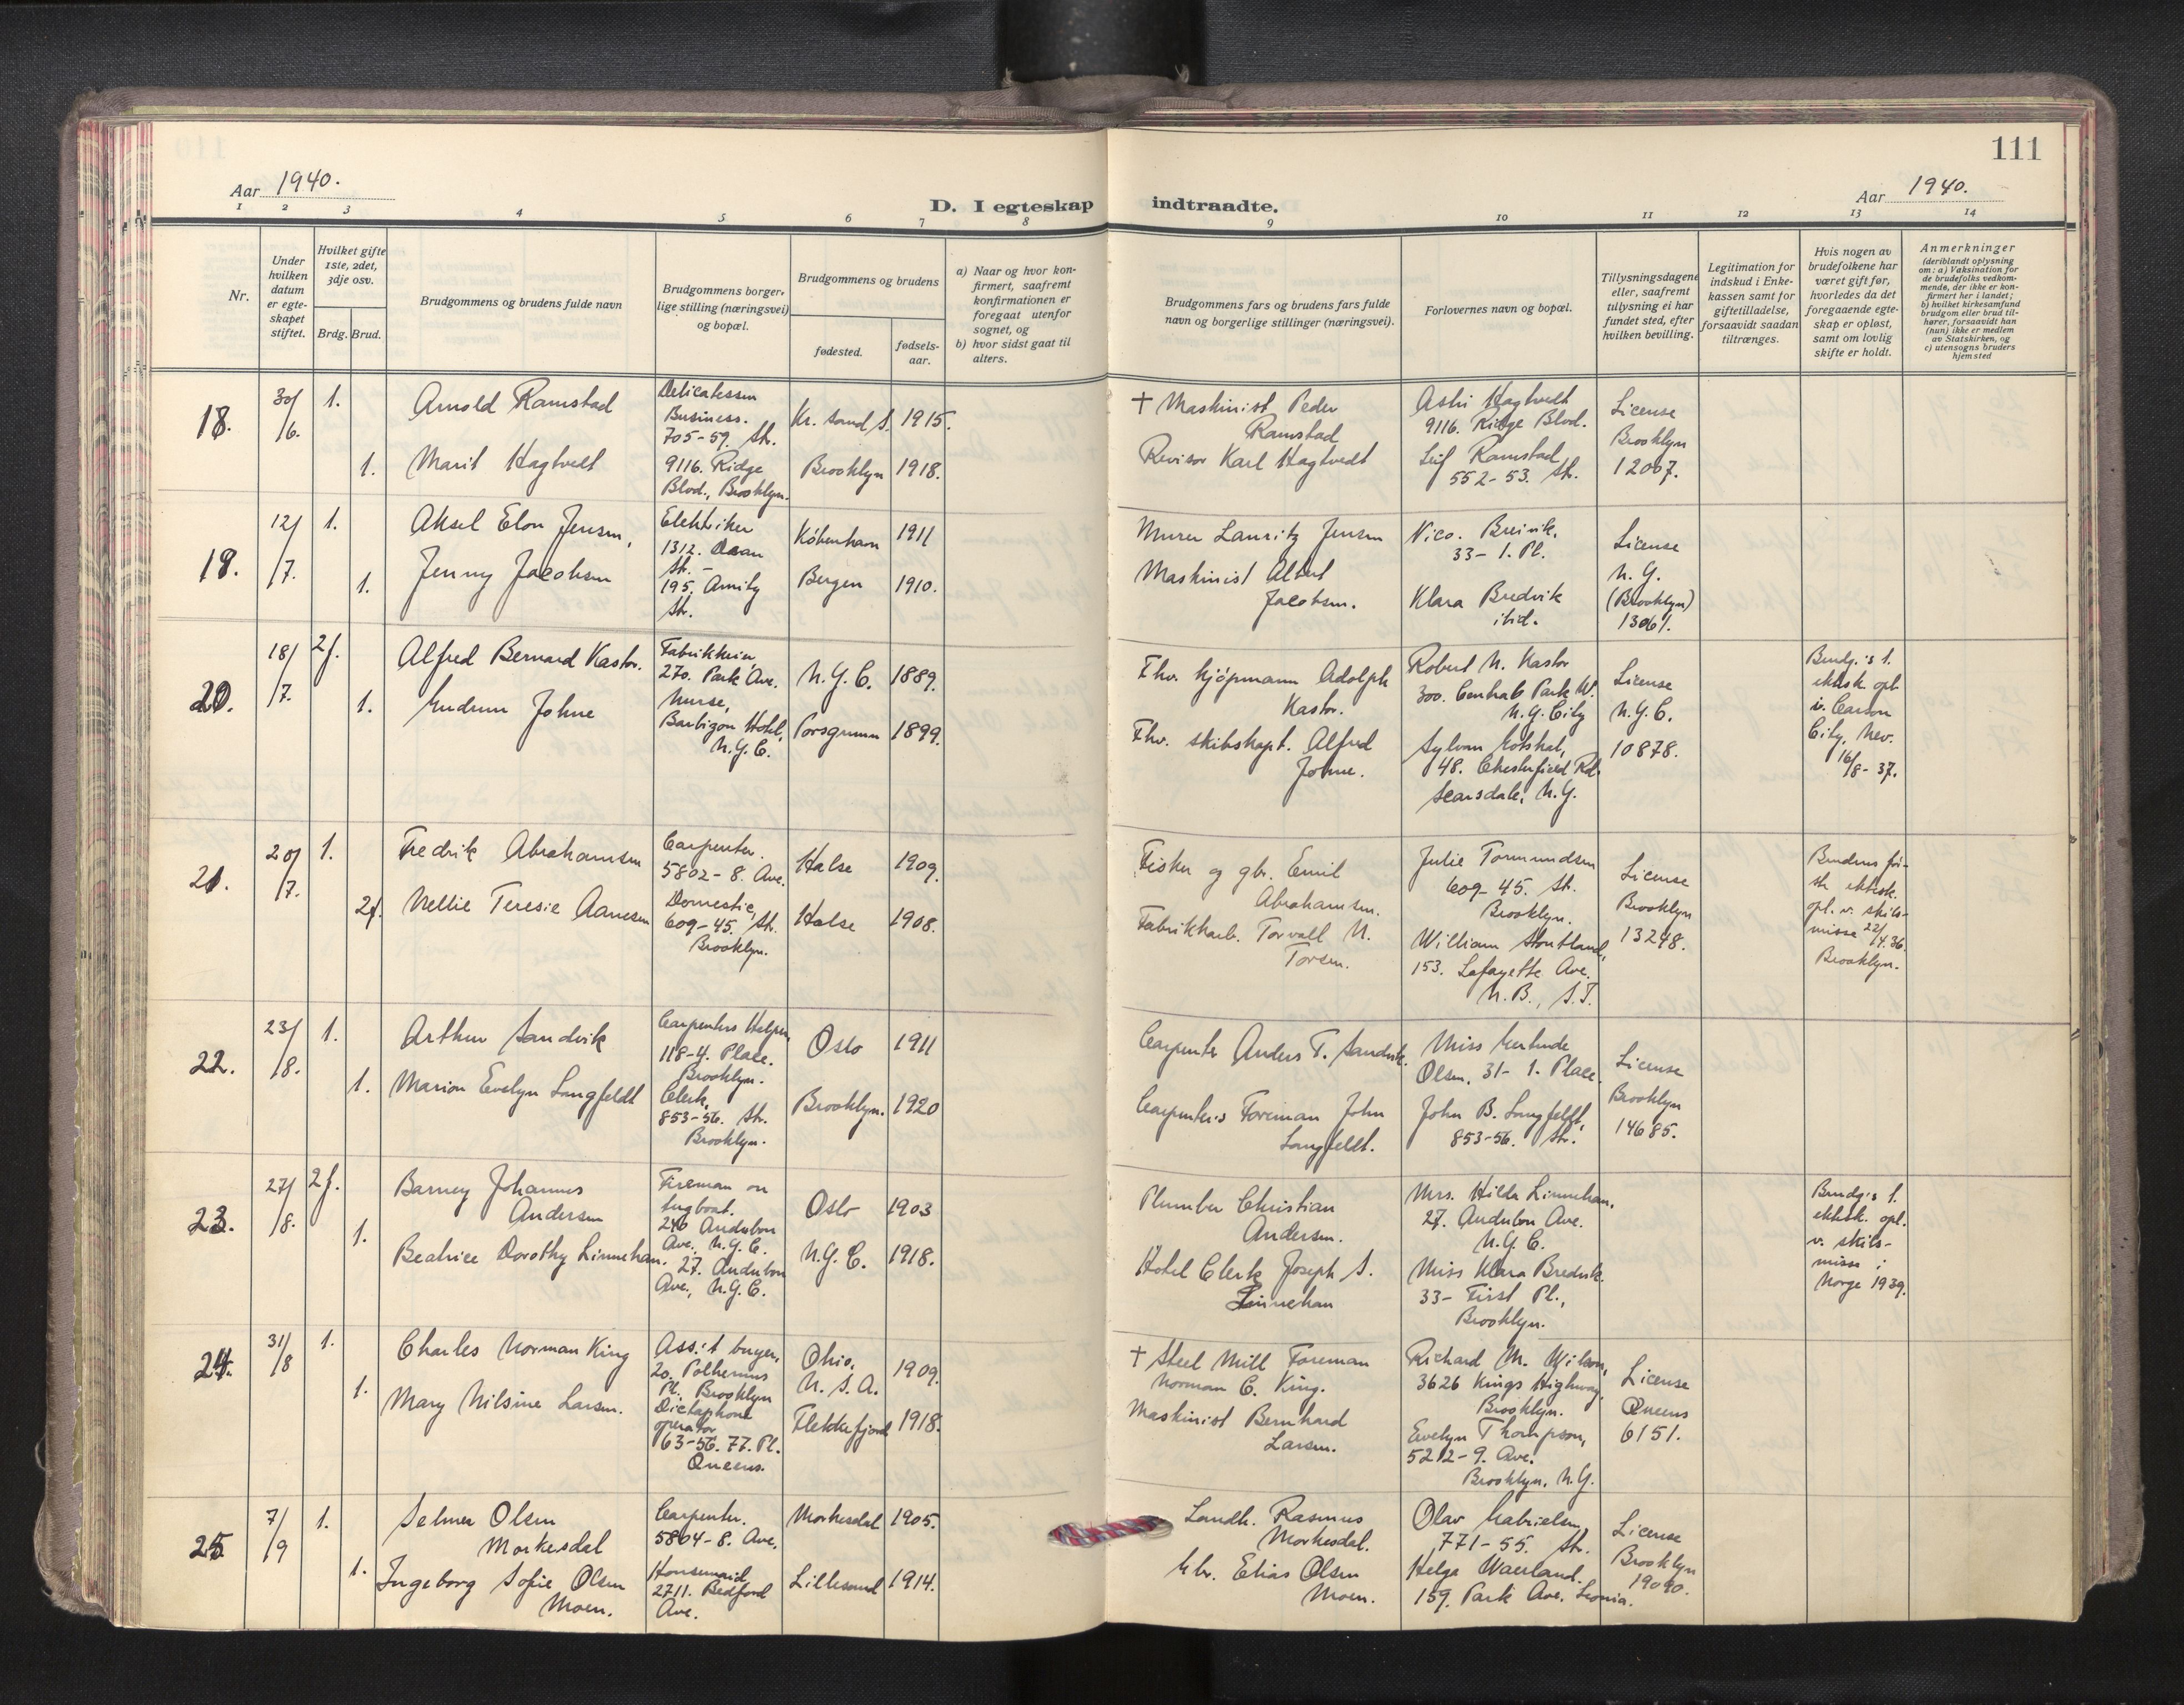 111
Aar 1940.
Aar 1940.
D. I egteskap indtraadte.
1 2 3 4 5 6 7 8 9 10 11 12 13 14
Nr.
Under
hvilken
datum
er egte-
skapet
stiftet.
Hvilket gifte
1ste, 2det,
3dje osv.
Brdg. Brud.
Brudgommens og brudens fulde navn
Brudgommens borger-
lige stilling (næringsvei)
og bopæl.
Brudgommens og brudens
fødested.
fødsels-
aar.
a) Naar og hvor kon-
firmert, saafremt
konfirmationen er
foregaat utenfor
sognet, og
b) hvor sidst gaat til
alters.
Brudgommens fars og brudens fars fulde
navn og borgerlige stillinger (næringsvei).
Forlovernes navn og bopæl.
Tillysningsdagene
eller, saafremt
tillysning ei har
fundet sted, efter
hvilken bevilling.
Legitimation for
indskud i Enke-
kassen samt for
giftetilladelse,
forsaavidt saadan
tiltrænges.
Hvis nogen av
brudefolkene har
været gift før,
hvorledes da det
foregaaende egte-
skap er opløst,
samt om lovlig
skifte er holdt.
Anmerkninger
(deriblandt oplysning
om: a) Vaksination for
de brudefolks vedkom-
mende, der ikke er kon-
firmert her i landet;
b) hvilket kirkesamfund
brudgom eller brud til-
hører, forsaavidt han
(hun) ikke er medlem
av Statskirken, og
c) utensogns bruders
hjemsted
18.
30/
/6.
1.
Arnold Ramstad
Delicatessen
Business.
705-59. Str.
Kr. sand S. 1915.
† Maskinist Peder
Ramstad
Astri Hagtvedt
9116. Ridge Blvd.
License
Brooklyn
12067.
1.
Marit Hagtvedt
9116. Ridge
Blvd., Brooklyn.
Brooklyn 1918.
Revisor Karl Hagtvedt
Leif Ramstad
552-53. Str.
19.
12/
/7.
1.
Aksel Elon Jensen,
Elektriker
1312. Dean
Str. -
København 1911
Murer Lauritz Jensen
Nico. Breivik,
33- 1. Pl.
License
N.Y.
(Brooklyn)
13061.
1.
Jenny Jacobsen
195. Amity
Str.
Bergen 1910.
Maskinist Albert
Jacobsen.
Klara Bredvik
ibid.
20.
18/
/7.
2g.
Alfred Bernard Kastor.
Fabrikkeier,
270. Park Ave.
N.Y.C. 1889.
Fhv. kjøpmann Adolph
Kastor.
Robert N. Kastor
300. Central Park W.
N.Y. City
License
N.Y.C.
10878.
Brudg.'s 1.
ektsk. opl.
i Carson
City, Nev.
16/8- 37.
1.
Gudrun Johne
Nurse,
Barbizon Hotel,
N.Y.C.
Porsgrunn 1899.
Fhv. skibskapt. Alfred
Johne.
Sylvan Gotshal,
48. Chesterfield Rd.
Scarsdale, N.Y.
21.
20/
/7.
1.
Fredrik Abrahamsen
Carpenter.
5802-8. Ave.
Halse 1909.
Fisker og gbr. Emil
Abrahamsen.
Julie Tormundsen
609-45. Str.
Brooklyn.
License
Brooklyn
13248.
Brudens før-
ste ektesk.
opl. v. skils-
misse 22/4.36.
Brooklyn.
2g.
Nellie Teresie Aanesen
Domestic,
609-45. Str.
Brooklyn.
Halse 1908.
Fabrikkarb. Torvall N.
Torsen.
William Stoutland,
153. Lafayette Ave.
N.B., S.I.
22.
23/
/8.
1.
Arthur Sandvik
Carpenters Helper,
118-4. Place.
Brooklyn.
Oslo 1911
Carpenter Anders T. Sandvik.
Miss Gertrude
Olsen, 31- 1. Place.
License
Brooklyn
14685.
1.
Marion Evelyn Langfeldt
Clerk,
853-56. Str.
Brooklyn.
Brooklyn. 1920
Carpenter's Foreman John
Langfeldt.
John B. Langfeldt,
853-56. Str.
23.
27/
/8.
2g.
Barney Johannes
Andersen
Fireman on
tugboat.
240 Audubon
Ave. N.Y.C.
Oslo 1903
Plumber Christian
Andersen.
Mrs. Hilda Linnehan,
27. Audubon Ave.
N.Y.C.
Brudg's 1.
ektesk. opl.
v. skils-
misse i
Norge 1939.
1.
Beatrice Dorothy Linnehan.
27. Audubon
Ave., N.Y.C.
N.Y.C. 1918.
Hotel Clerk Joseph S.
Linnehan
Miss Klara Bredvik
33- First Pl.,
Brooklyn.
24.
31/
/8
1.
Charles Norman King
Ass.'t buyer,
20. Polhemus
Pl. Brooklyn
Ohio,
U.S.A.
1909.
† Steel Mill Foreman
Norman C. King.
Richard M. Wilson,
3626 Kings Highway,
Brooklyn.
License
Queens
6151.
1.
Mary Nilsine Larsen.
Dictaphone
operator
63-56. 77. Pl.
Queens.
Flekkefjord 1918.
Maskinist Bernhard
Larsen.
Evelyn Thompson,
5212-9. Ave.
Brooklyn, N.Y.
25
7/
/9
1.
Selmer Olsen
Morkesdal
Carpenter.
5804-8. Ave.
Morkesdal 1905.
Landh. Rasmus
Morkesdal.
Olav Gabrielsen,
771-55. Str.
License
Brooklyn
19090.
1.
Ingeborg Sofie Olsen
Moen.
Housemaid,
2711. Bedford
Ave.
Lillesand 1914.
Gbr. Elias Olsen
Moen.
Helga Waerland.
159. Park Ave. Leonia.